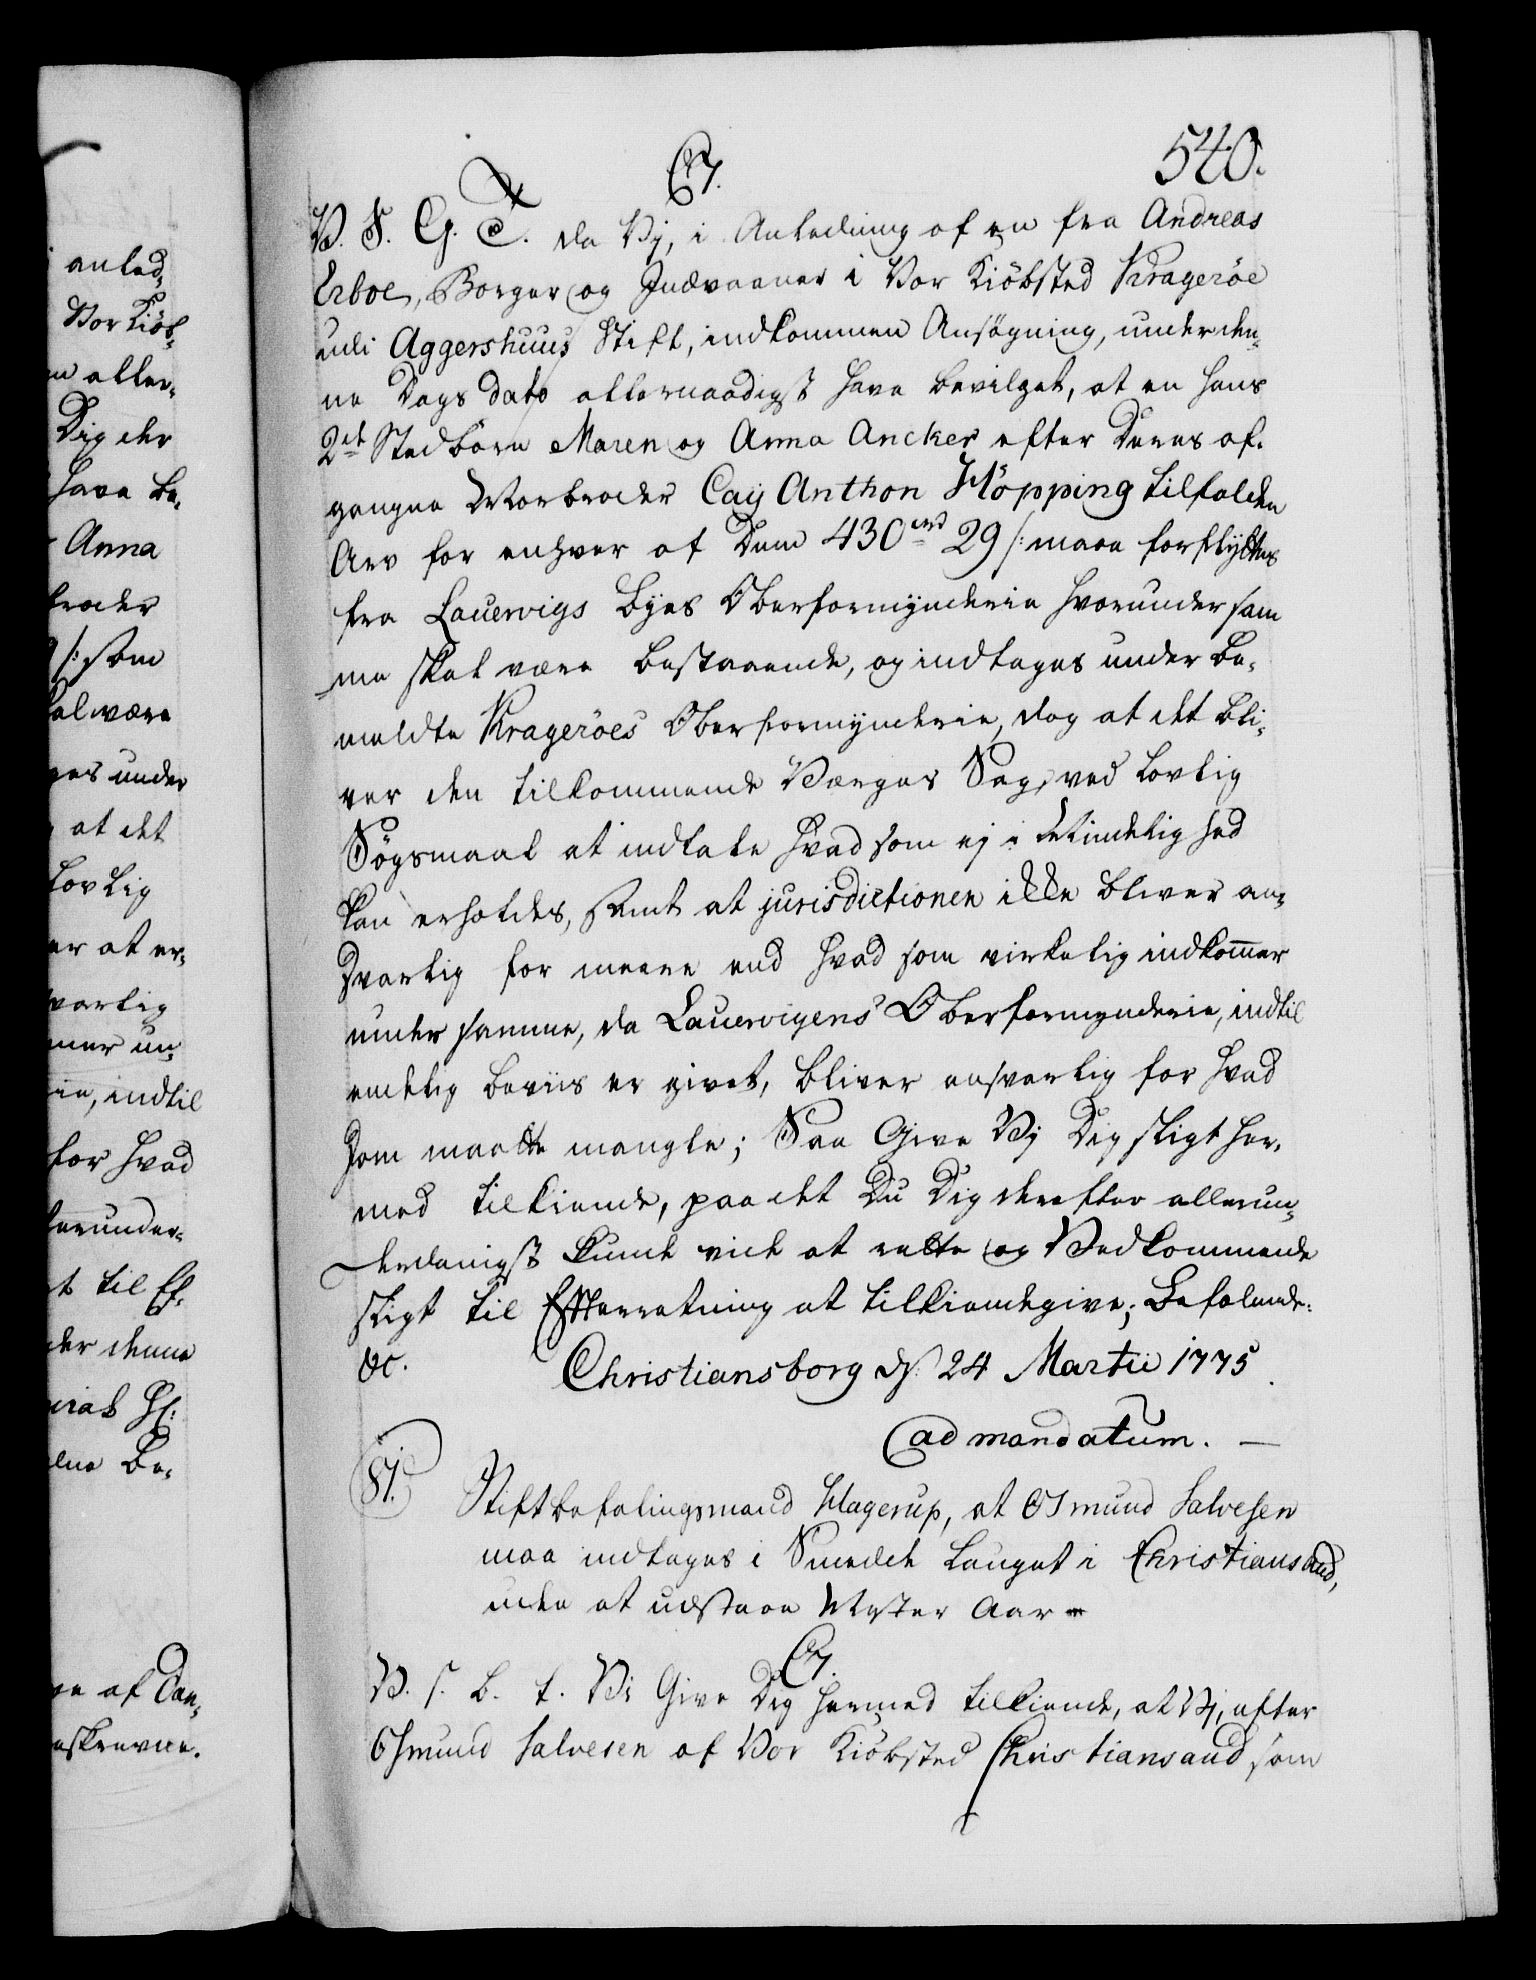 540.
C7.
V. S. G. T. da Vj, i Anledning af en fra Andreas
Erboe, Borger og Indvaaner i Vor Kiöbsted Krageröe
udi Aggershuus Stift, indkommen Ansøgning, under den-
ne Dags dato allernaadigst have bevilget, at en hans
2de Stedbörn Maren og Anna Ancker efter Deres af-
gangne Morbroder Caÿ Anthon Höpping tilfalden
Arv for enhver af Dem 430 rd 29 s: maae forflÿttes
fra Lauervigs Byes Oberformynderie hvorunder sam
me skal være bestaaende, og indtages under be-
meldte Krageröes Oberformynderie, dog at det bli-
ver den tilkommende Værges Sag, ved lovlig
Sögsmaal at indtale hvad som ej i Mindelighed
kan erholdes, samt at jurisdictionen ikke bliver an-
svarlig for meere end hvad som virkelig indkommer
under samme, da Lauervigens Oberformynderie, indtil
endelig beviis er givet, bliver ansvarlig for hvad
som maatte mangle; Saa Give Vj Dig sligt her-
med tilkiende, paa det Du Dig derefter allerun-
derdanigst kunde vide at rette og Vedkommende
sligt til Efterretning at tilkiendegive; Befalende:
&c. Christiansborg d. 24 Martii 1775
ad mandatum. —
81.
Stiftbefalingsmand Hagerup, at Osmund Salvesen
maa indtages i Smedde Lauget i Christiansand,
uden at udstaae Mester Aar
C7.
V. S. B. t. Vi Give Dig hermed tilkiende, at Vj, efter
Osmund Salvesen af Vor Kiöbsted Christiansand som
anled-
Vor Kiöb-
aller-
Dig der
have be-
Anna
broder
s: som
skal være
ges under
at det
lovlig
er at er-
svarlig
mer un-
rie, indtil
for hvad
lerunder-
t til Ef-
der denne